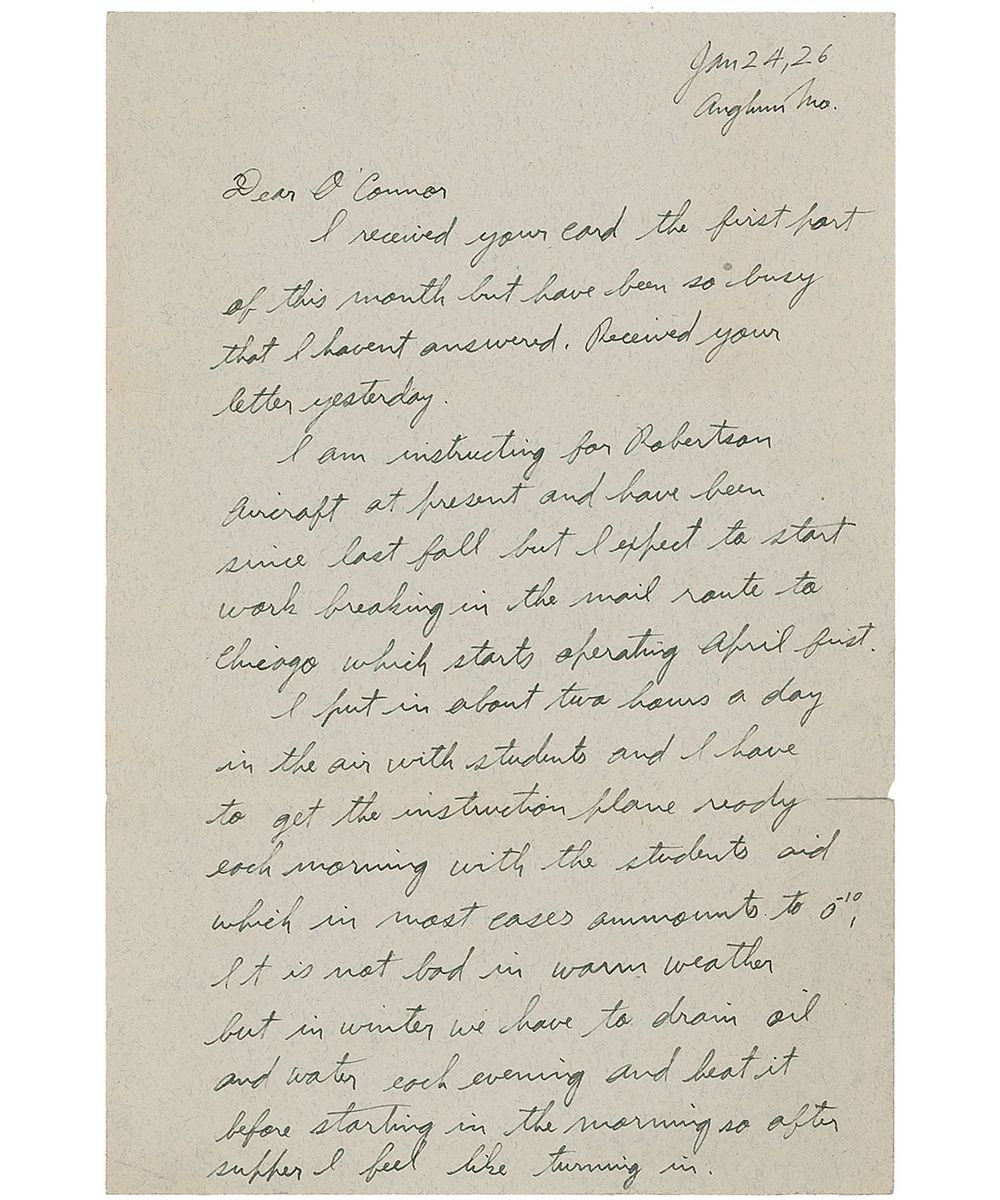 Jan 24, 26
Anglum Mo.
Dear O'Connor
I received your card the first part
of this month but have been so busy
that I havent answered. Received your
letter yesterday.
I am instructing for Robertson
Aircraft at present and have been
since last fall but I expect to start
work breaking in the mail route to
Chicago which starts operating April first.
I put in about two hours a day
in the air with students and I have
to get the instruction plane ready
each morning with the students aid
which in most cases ammounts to 0⁻¹⁰,
It is not bad in warm weather
but in winter we have to drain oil
and water each evening and heat it
before starting in the morning so after
supper I feel like turning in.